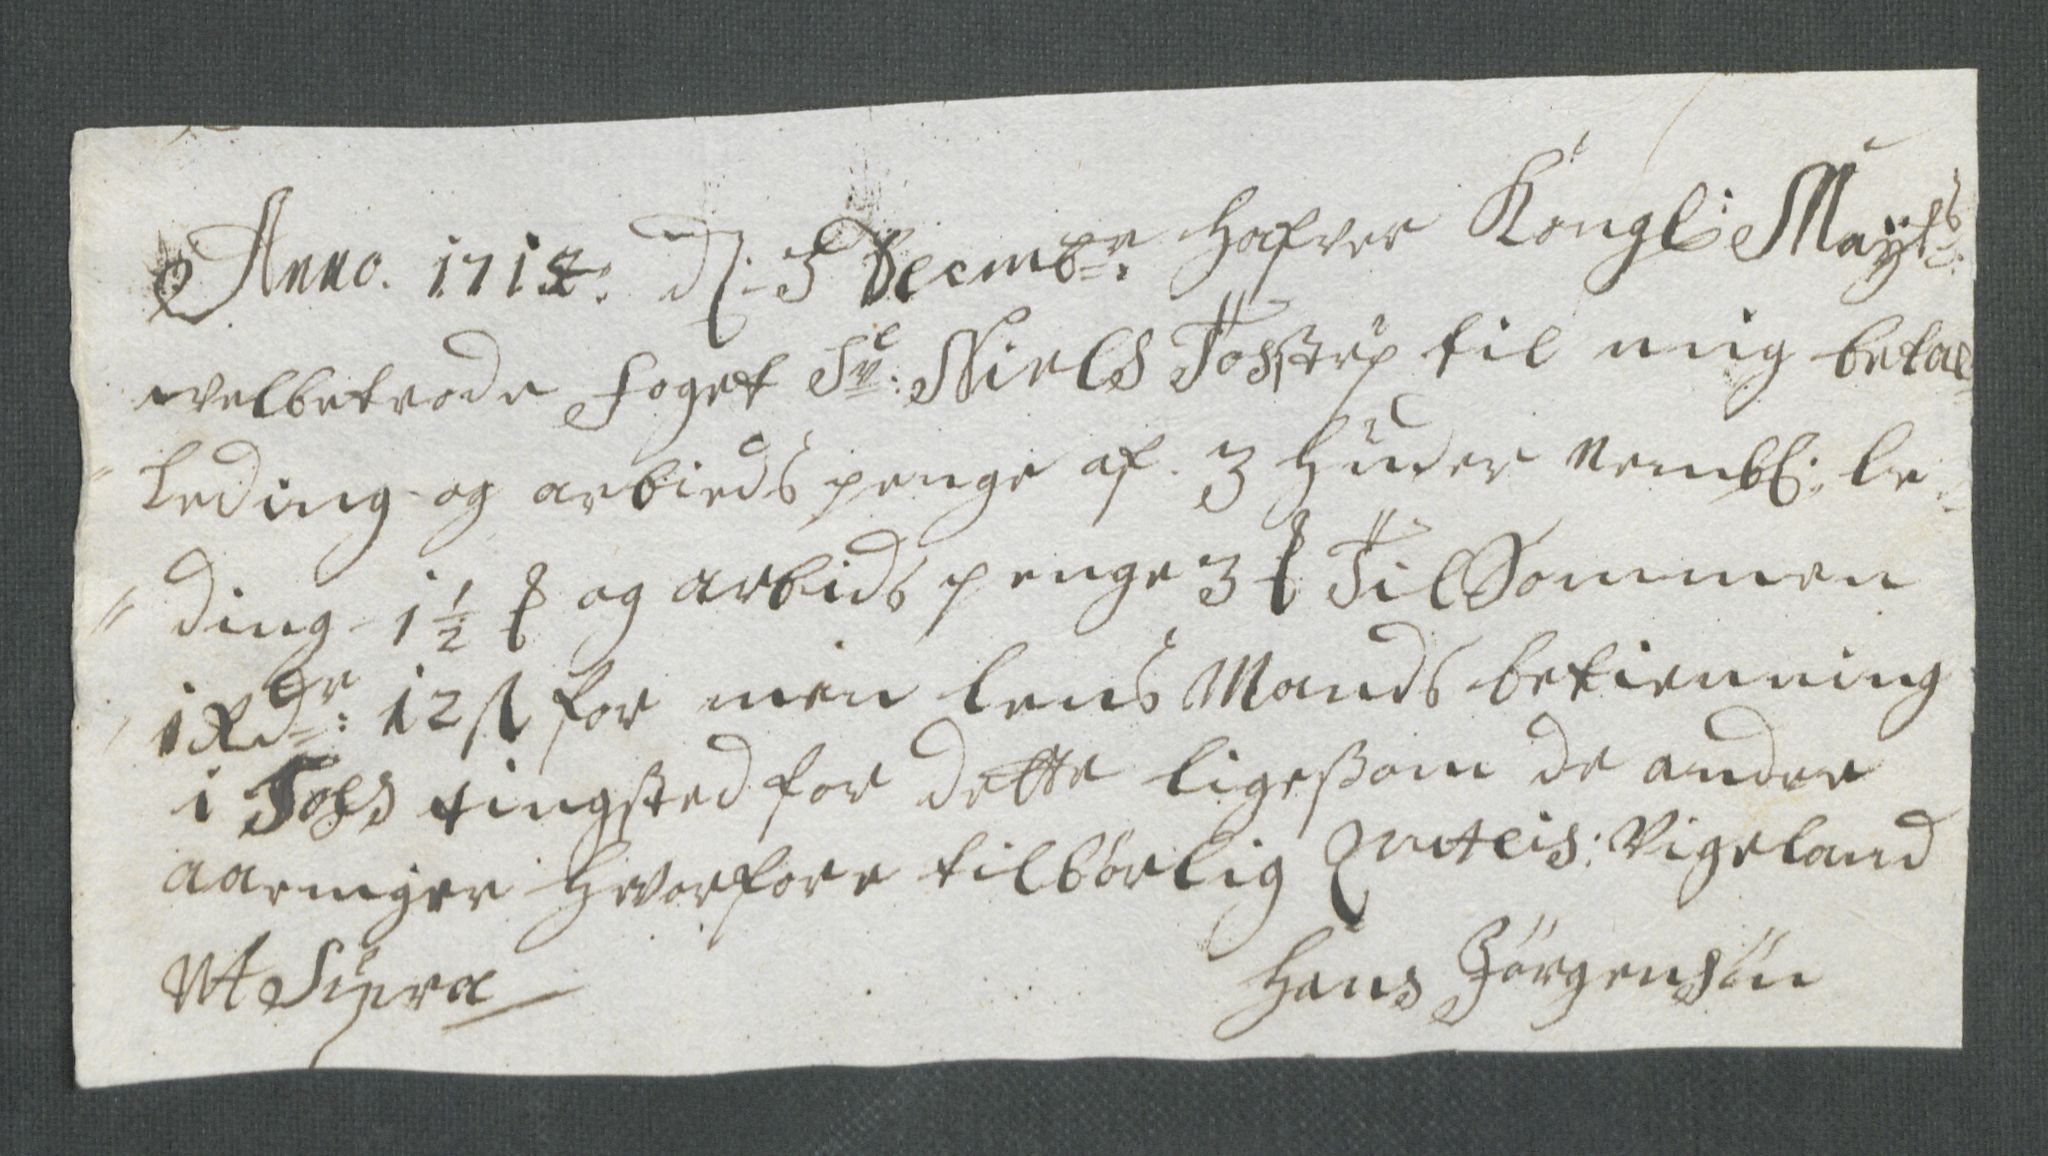 Anno. 1714. d. 3 Decembr: hafver Kongl: Mayts:
velbetrode foget Sr: Niels Tosstrup til mig betal
leding og arbieds penge af. 3 huder Nembl: le-
ding 1½ ß og arbids penge 3 ß Til Sammen
1 Rdr: 12 ß for min lens Mands betienning
i Fohs tingsted for dette ligesom de andre
aaringer hvorfore tilbörlig Qviteris: Vigeland
Ut Supra
Hans Jörgensön